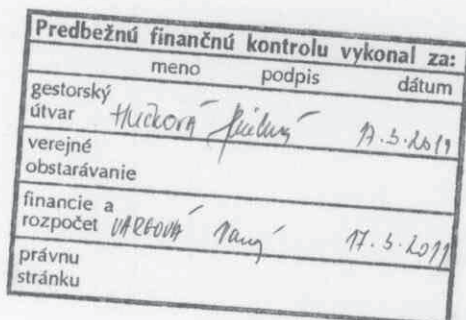 Predbežnú finančnú kontrolu vykonal za:
meno podpis dátum
gestorský
útvar Hučková 17.3.2011
verejné
obstarávanie
financie a
rozpočet VARGOVÁ 17.3.2011
právnu
stránku